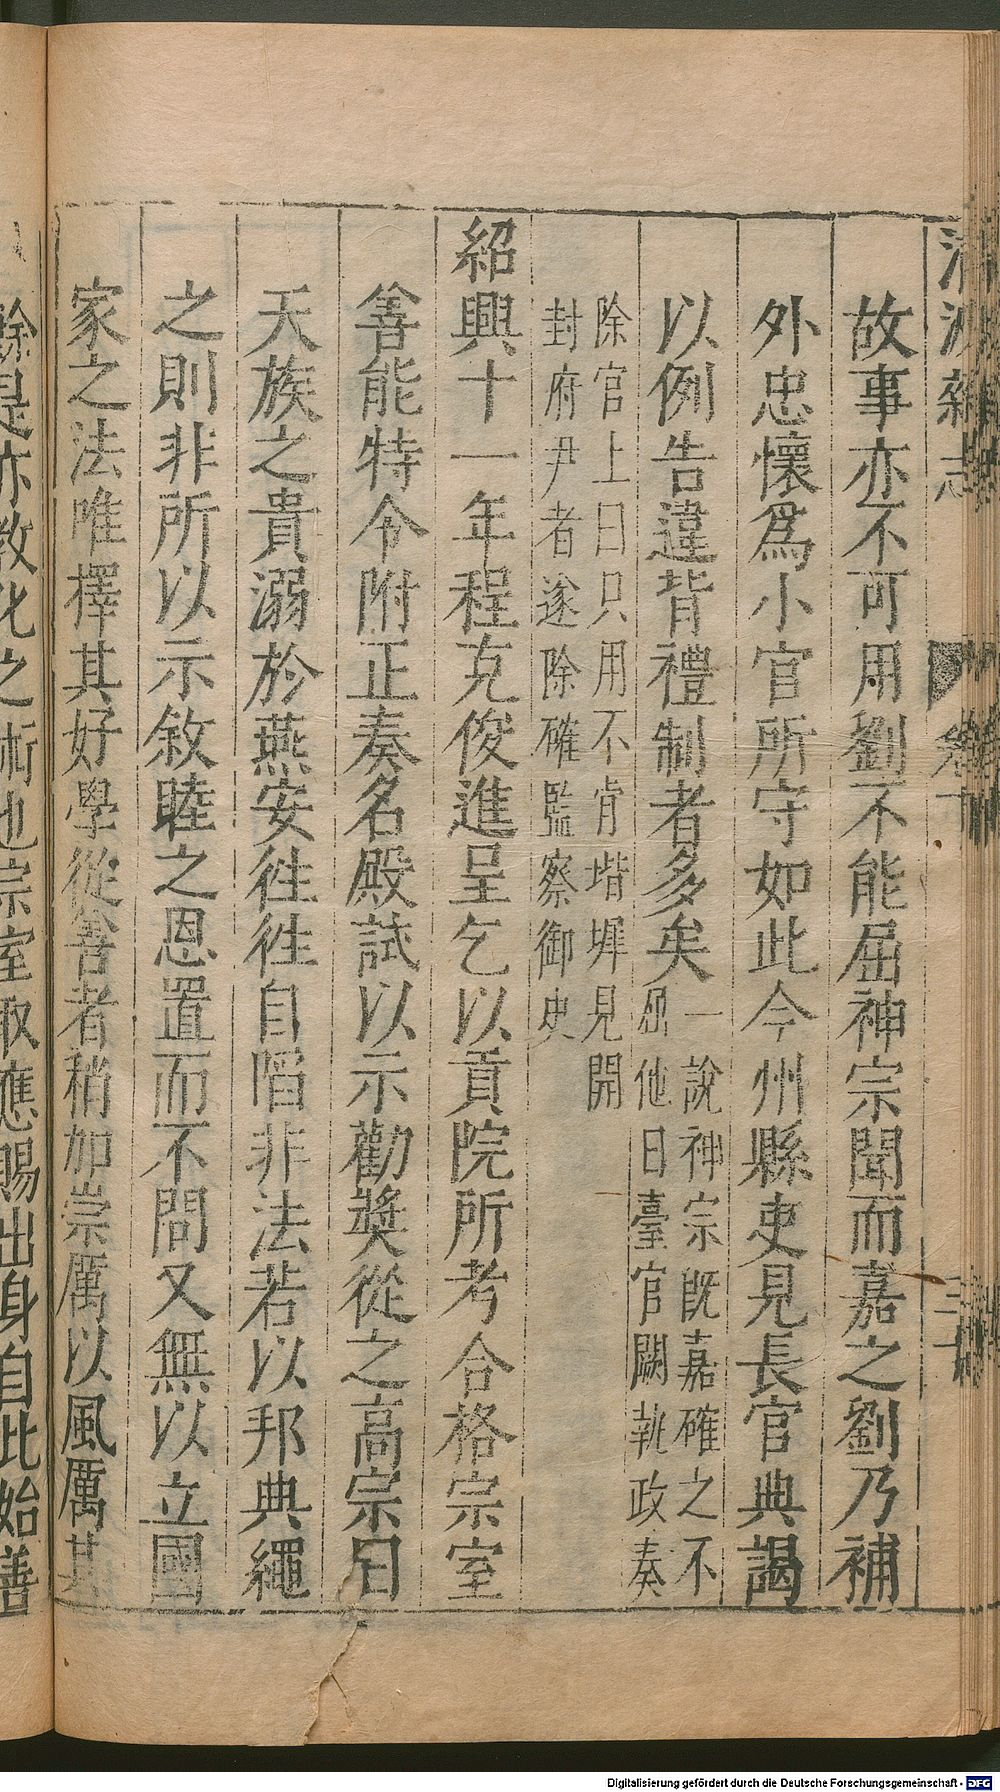 清波雜志
卷十
故事亦不可用劉不能屈神宗聞而嘉之劉乃補
外忠懷爲小官所守如此今州縣吏見長官典謁
以例告違背禮制者多矣
一說神宗既嘉確之不
屈他日臺官闕執政奏
除官上曰只用不肯堦墀見開
封府尹者遂除確監察御史
紹興十一年程克俊進呈乞以貢院所考合格宗室
善能特令附正奏名殿試以示勸獎從之高宗曰
天族之貴溺於燕安徃徃自陷非法若以邦典繩
之則非所以示敘睦之恩置而不問又無以立國
家之法唯擇其好學從善者稍加崇厲以風厲其
餘是亦教化之術也宗室取應賜出身自此始善
Digitalisierung gefördert durch die Deutsche Forschungsgemeinschaft - DFG